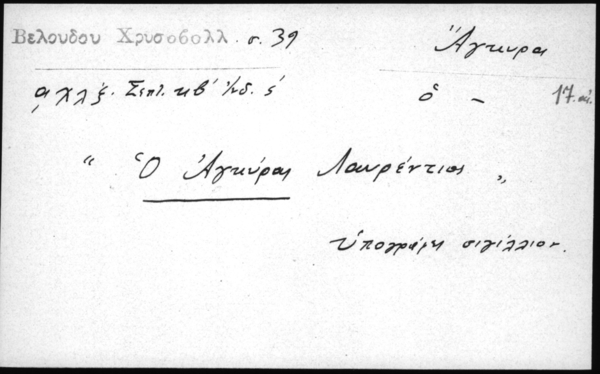 Βελουδου Χρυσοβολλ. σ. 39
Ἄγκυρα
αχλξ. Σεπτ. κβ' ἰνδ. έ
ὁ – 17. αἰ.
“ Ὁ Ἀγκύρας Λαυρέντιος „
ὑπογράφει σιγίλλιον.